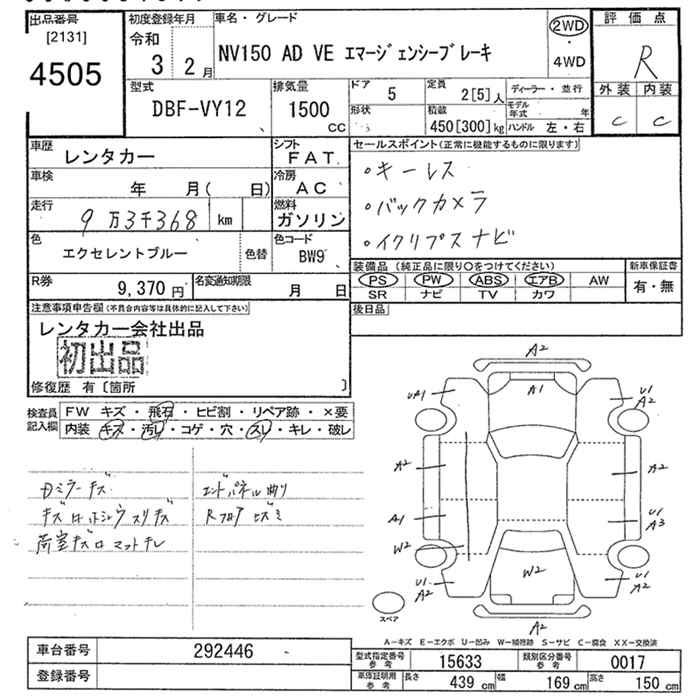 出品番号
[2131]
4505
初度登録年月
令和
3 2月
車名・グレード
NV150 AD VE エマージェンシーブレーキ
2WD
・
4WD
評価点
R
外装 内装
C C
型式
DBF-VY12
排気量
1500
CC
ドア
5
形状
定員
2[5]人
積載
450[300]kg
ディーラー・並行
モデル年式 年
ハンドル 左・右
車歴
レンタカー
シフト
FAT
車検
年 月( 日)
冷房
AC
走行
9万3千368 km
燃料
ガソリン
色
エクセレントブルー
色替
色コード
BW9
R券
9,370円
名変通知期限
月 日
セールスポイント(正常に機能するものに限ります)
・キーレス
・バックカメラ
・イクリプスナビ
装備品(純正品に限り○をつけてください)
PS PW ABS エアB AW
SR ナビ TV カワ
新車保証書
有・無
後日品
注意事項申告欄(不具合内容等は具体的に記入して下さい)
レンタカー会社出品
初出品
修復歴 有〔箇所 〕
検査員
記入欄
FW キズ・飛石・ヒビ割・リペア跡・×要
内装 キズ・汚レ・コゲ・穴・スレ・キレ・破レ
Dミラーキズ
エンドパネル曲り
RフロアヒズミA2
A1
UA1
U1
A2
A2
A2
A1
U1
A3
W2
W2
U1
A2
U1
A2
A2
スペア
A―キズ E―エクボ U―凹み W―補修跡 S―サビ C―腐食 XX―交換済
車台番号
292446
登録番号
型式指定番号
参考
15633
類別区分番号
参考
0017
車庫証明用
参考
長さ
439 cm
幅
169 cm
高さ
150 cm